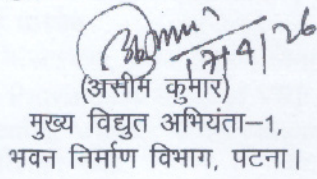 17/4/26
(असीम कुमार)
मुख्य विद्युत अभियंता–1,
भवन निर्माण विभाग, पटना।